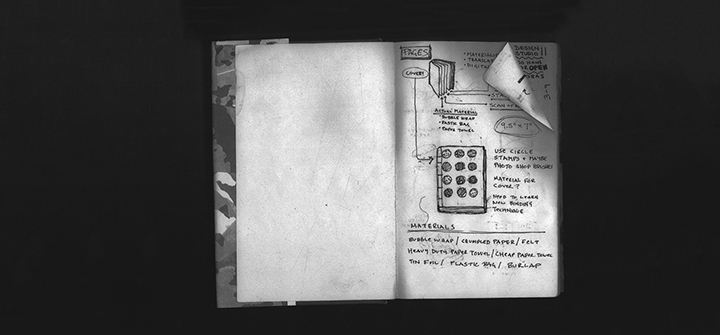 PAGES
DESIGN
STUDIO
OPEN
COVER?
ACTUAL MATERIAL
• BUBBLE WRAP
• PLASTIC BAG
• PAPER TOWEL
9.5" x 7"
USE CIRCLE
STAMPS + MAYBE
PHOTO SHOP BRUSHES
MATERIAL FOR
COVER?
NEED TO LEARN
NEW BINDING
TECHNIQUE
MATERIALS
BUBBLE WRAP / CRUMPLED PAPER / FELT
HEAVY DUTY PAPER TOWEL / CHEAP PAPER TOWEL
TIN FOIL / PLASTIC BAG / BURLAP